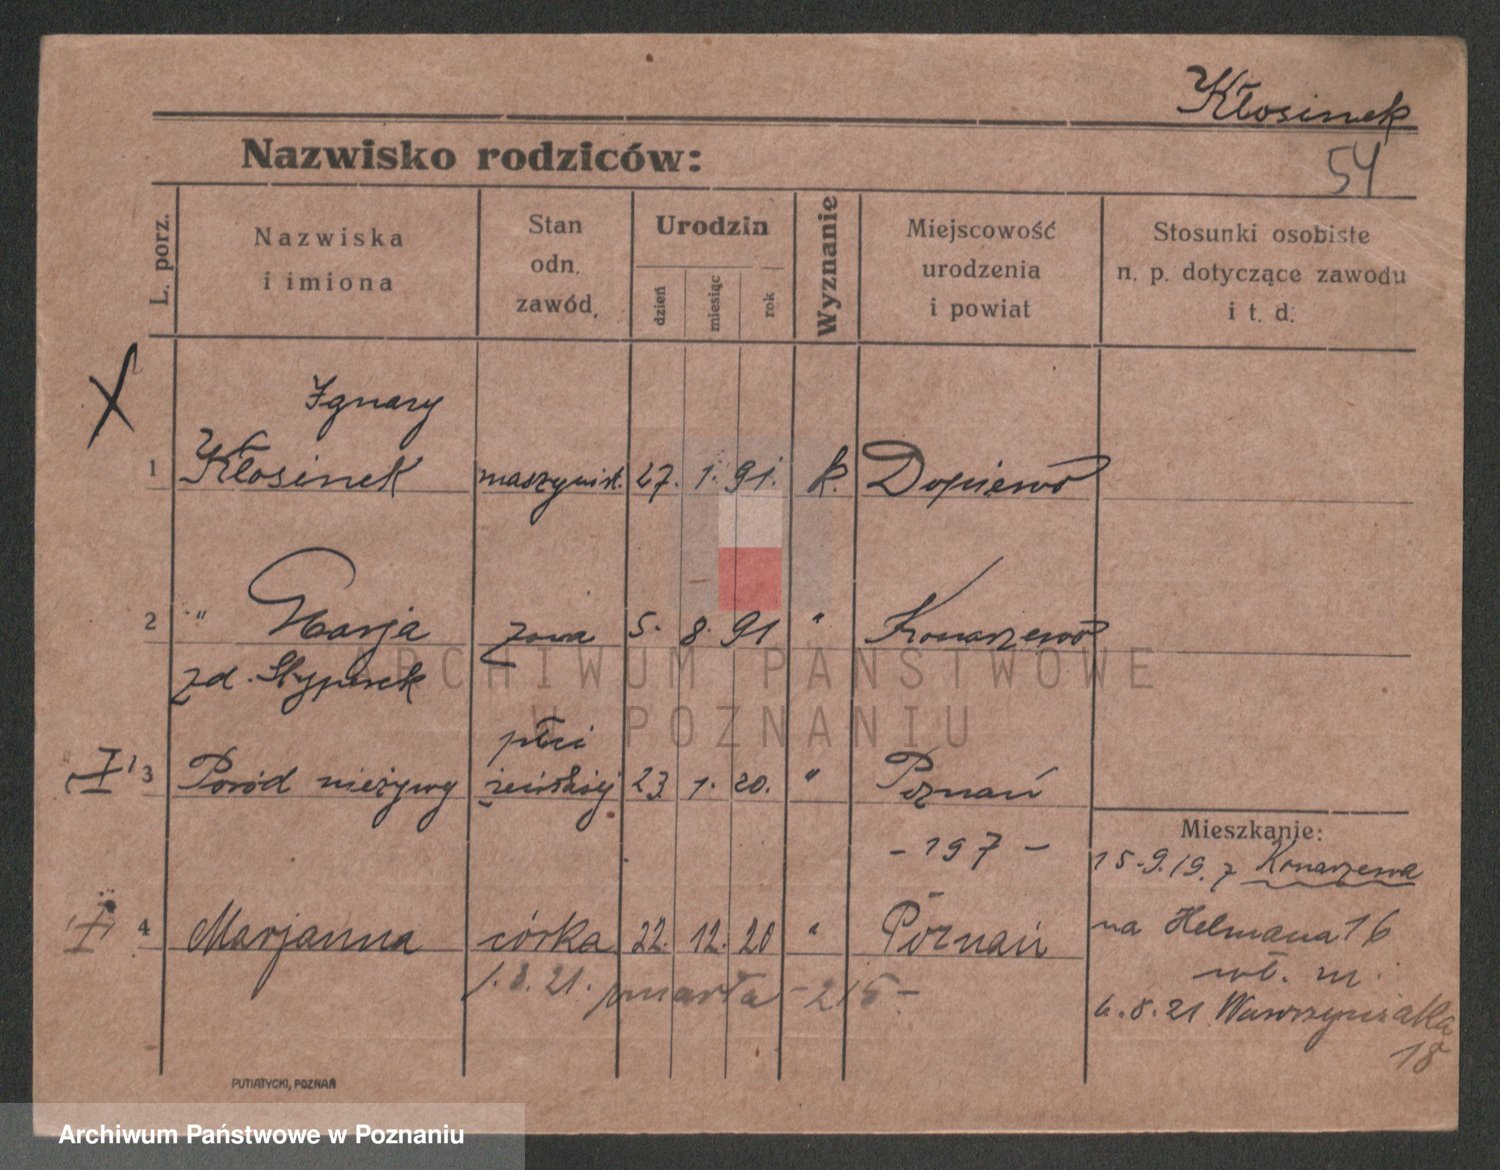 Kłosinek
Nazwisko rodziców:
54
L. porz.
Nazwiska
i imiona
Stan
odn.
zawód.
Urodzin
dzień
miesiąc
rok
Wyznanie
Miejscowość
urodzenia
i powiat
Stosunki osobiste
n. p. dotyczące zawodu
i t. d.
Ignacy
1 Kłosinek maszynist. 27. 1. 91. k. Dopiewo
2 " Marja żona 5. 8. 91 " Konarzewo
zd.
płci
3 Poród nieżywy żeńskiej 23 1. 20. " Poznań
- 197 -
Mieszkanie:
15.9.19. z Konarzewa
4 Marjanna córka 22. 12. 20 " Poznań
na Helmana 16
wł. m.
1.3.21. zmarła - 215 -
6.8.21 Wawrzyniaka
18
PUTIATYCKI, POZNAŃ
ARCHIWUM PAŃSTWOWE
W POZNANIU
Archiwum Państwowe w Poznaniu